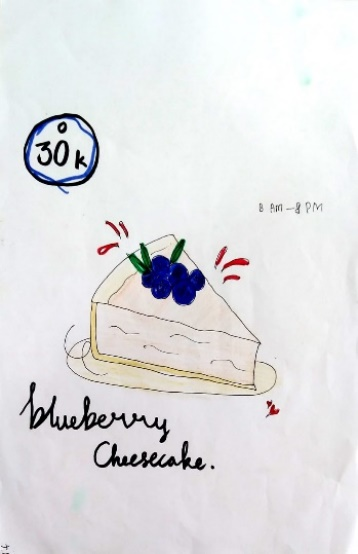 30k
8 AM - 8 PM
blueberry
Cheesecake.